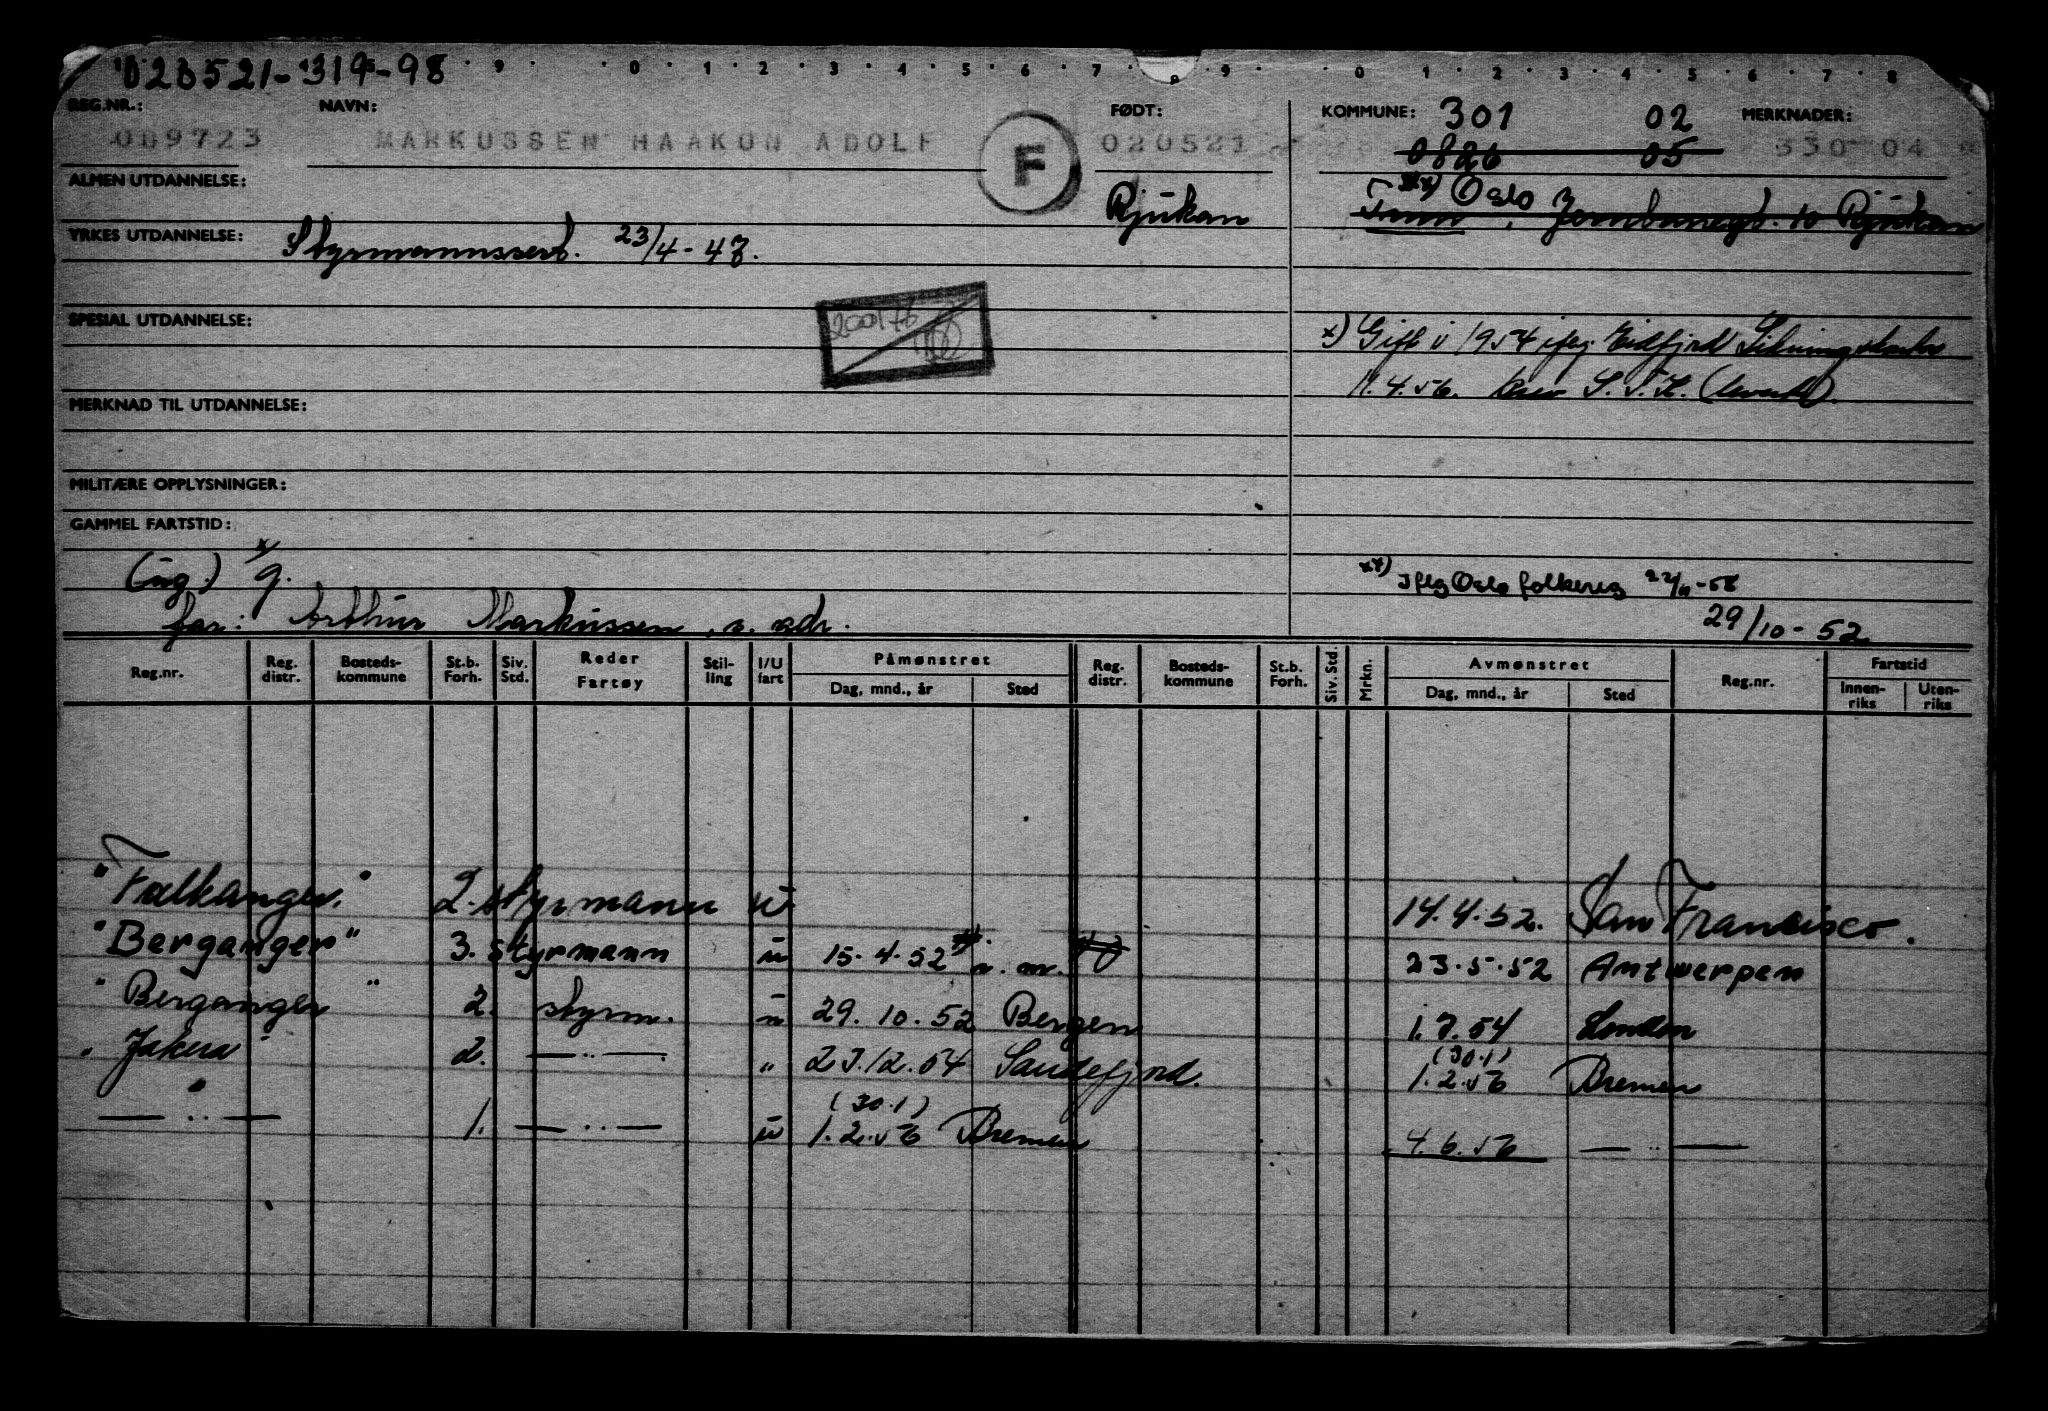 020521-319-98
9 0 1 2 3 4 5 6 7 8 9 0 1 2 3 4 5 6 7 8
REG.NR.: NAVN: FØDT: KOMMUNE: 301 02 MERKNADER:
009723 MARKUSSEN HAAKON ADOLF F 020521 0826 05 330 04
ALMEN UTDANNELSE: Rjukan xx) Oslo
Tinn, Jernbanegt. 10 Rjukan
YRKES UTDANNELSE: Styrmannssert. 23/4-47.
SPESIAL UTDANNELSE: 200176
x) Gift i 1954 ifلg. Eidfjord
11.4.56.
MERKNAD TIL UTDANNELSE:
MILITÆRE OPPLYSNINGER:
GAMMEL FARTSTID:
(ug.) x) g.
xx) Iflg Oslo folkereg 22/11-58
far: Arthur Markussen, s. adr. 29/10-52
Reg.nr. Reg. distr. Bosteds-kommune St.b. Forh. Siv. Std. Reder Fartøy Stil-ling I/U fart Påmønstret Dag, mnd., år Sted Reg. distr. Bosteds-kommune St.b. Forh. Siv. Std. Mrkn. Avmønstret Dag, mnd., år Sted Reg.nr. Fartstid Innen-riks Uten-riks
"Falkanger." 2. styrmann u 14.4.52. San Francisco.
"Berganger" 3. styrmann u 15.4.52 n.m. 23.5.52 Antwerpen
"Berganger" 2. styrm. u 29.10.52 Bergen 1.7.54 London
"Jakera" 2. —"— " 23.12.54 Sandefjord. (30.1) 1.2.56 Bremen
—"— 1. —"— u (30.1) 1.2.56 Bremen 4.6.56 —"—